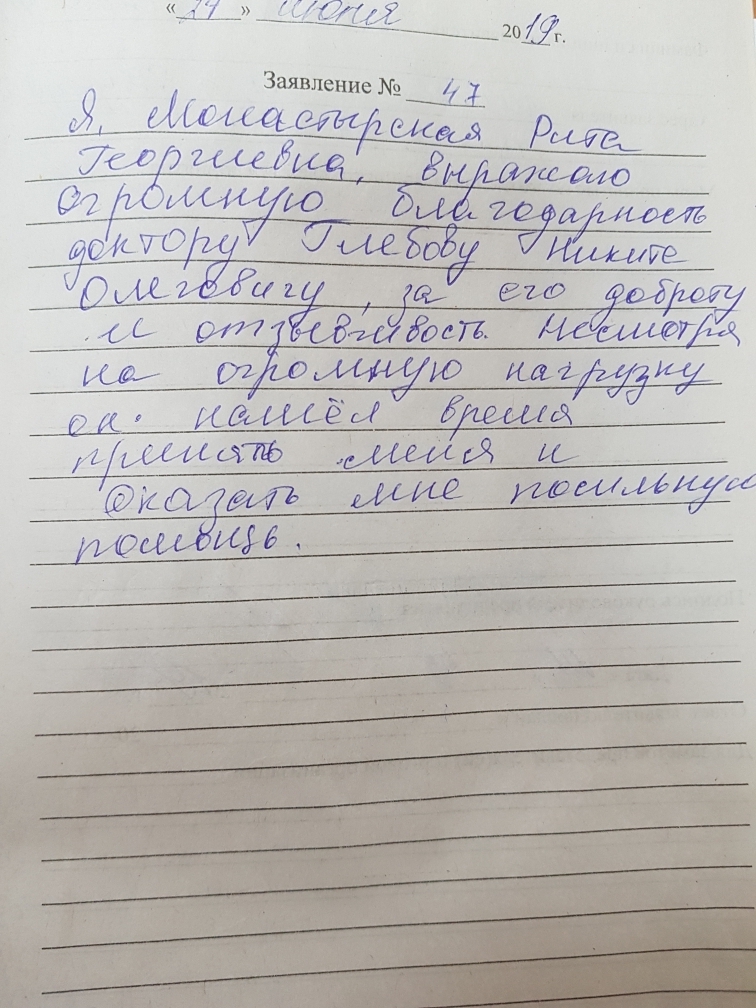 « 24 » июня 2019 г.
Заявление № 47
Я, Монастырская Рита
Георгиевна, выражаю
огромную благодарность
доктору Глебову Никите
Олеговичу, за его доброту
и отзывчивость. Несмотря
на огромную нагрузку
он нашёл время
принять меня и
оказать мне посильную
помощь.